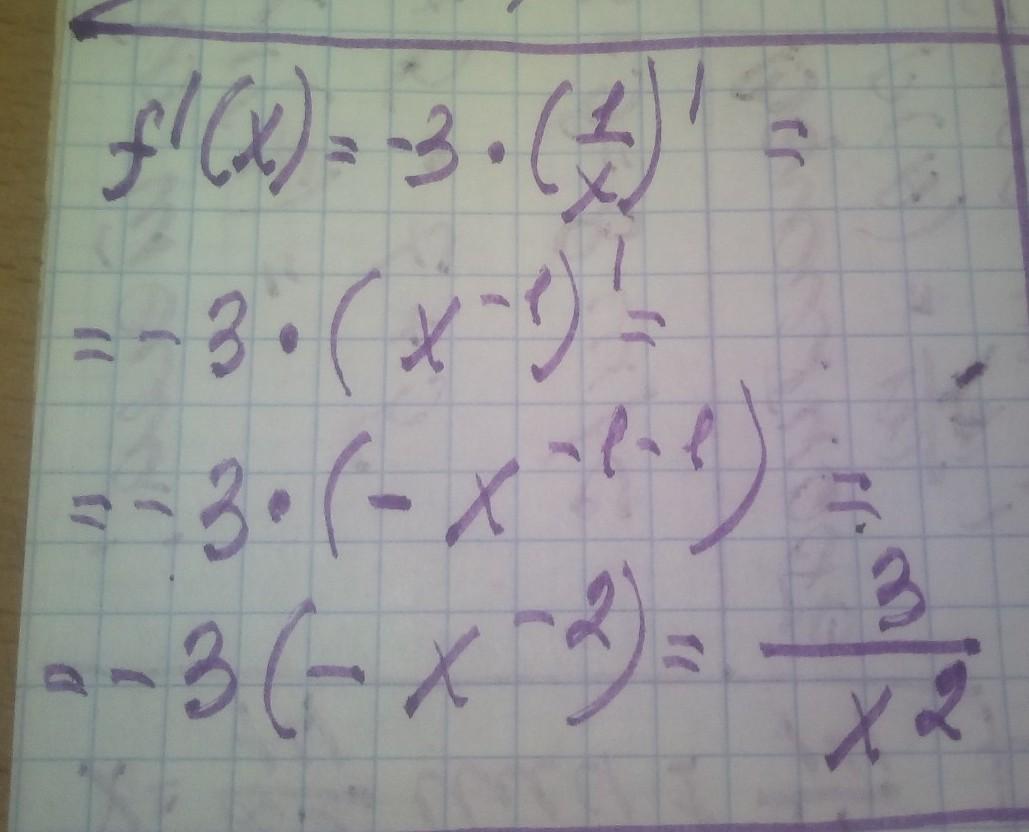 f'(x) = -3 · (1/x)' =
= -3 · (x^-1)' =
= -3 · (-x^-1-1) =
= -3(-x^-2) = 3/x^2